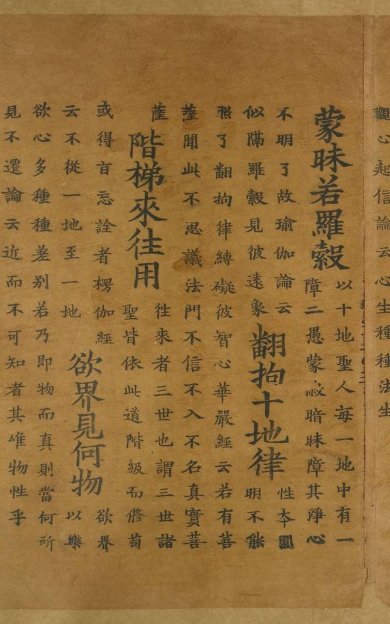 觀心起信論云心生種種法生
蒙昧若羅縠
以十地聖人每一地中有一
障二愚蒙蔽暗昧障其淨心
不明了故瑜伽論云
似隔羅縠見彼遠象
翻拘十地律
性本圓
明不能
照了翻拘律縛礙彼智心華嚴經云若有菩
薩聞此不思議法門不信不入不名真實菩
薩
階梯來往用
往來者三世也謂三世諸
聖皆依此道階級而修苟
或得旨忘詮者楞伽經
云不從一地至一地
欲界見何物
欲界
以樂
欲心多種種差別若乃即物而真則當何所
見不遷論云近而不可知者其唯物性乎